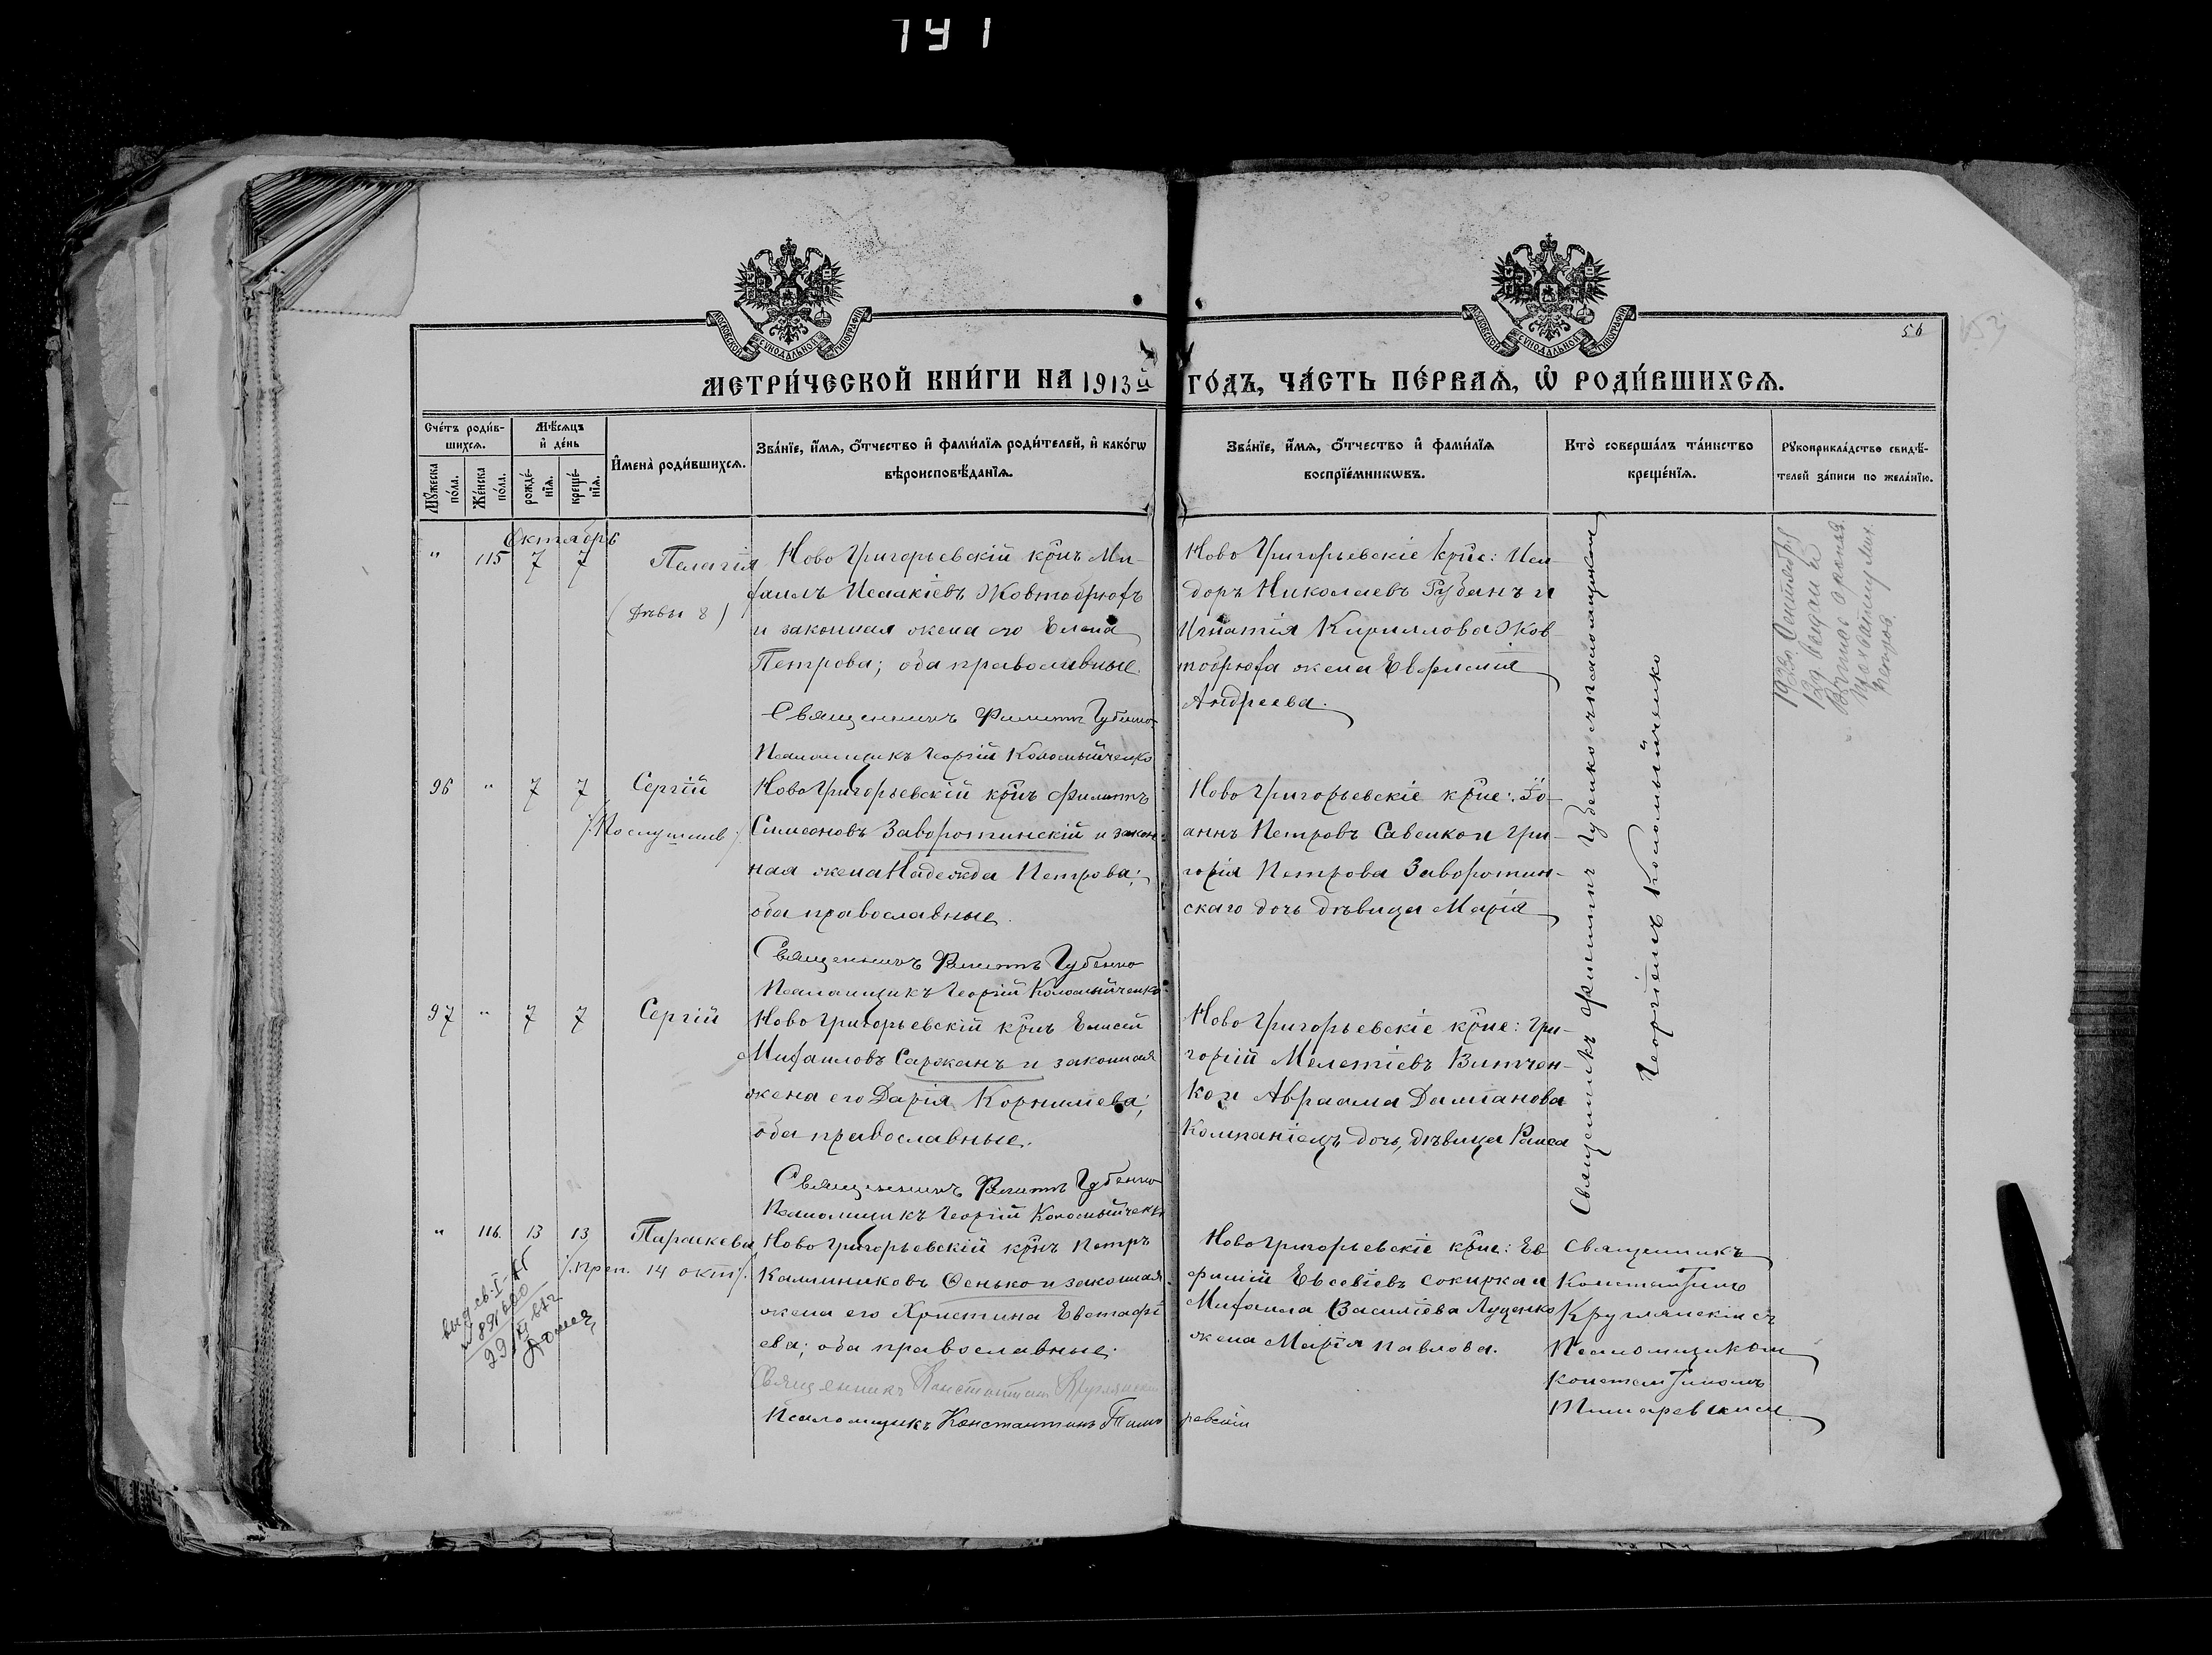 791
МОСКОВСКОЙ СѴНОДАЛЬНОЙ ТИПОГРАФІИ
МОСКОВСКОЙ СѴНОДАЛЬНОЙ ТИПОГРАФІИ
56
МЕТРИ́ЧЕСКОЙ КНИ́ГИ НА 1913й ГО́ДЪ, ЧА́СТЬ ПЕ́РВАѦ, Ѿ РОДИ́ВШИХСѦ.
Сче́тъ роди́в-
шихсѧ.
Мѣ́сѧцъ
и҆ де́нь
Мꙋ́жеска
по́ла.
Же́нска
по́ла.
рожде́-
нїѧ.
креще́-
нїѧ.
И҆мена̀ роди́вшихсѧ.
Зва́нїе, и҆́мѧ, ѻ҆́тчество и҆ фами́лїѧ роди́телей, и҆ како́гѡ
вѣроисповѣ́данїѧ.
Зва́нїе, и҆́мѧ, ѻ҆́тчество и҆ фами́лїѧ
воспрїе́мникѡвъ.
Кто̀ соверша́лъ та́инство
креще́нїѧ.
Рꙋкоприкла́дство свидѣ́-
телей за́писи по жела́нїю.
Октябрь
" 115 7 7 Пелагія
(Дѣвы 8)
Ново Григорьевскій крнъ Ми-
хаилъ Исаакіевъ Жовтобрюхъ
и законная жена его Елена
Петрова; оба православные.
Священникъ Филиппъ Губенко
Псаломщикъ Георгій Коломыйченко
Ново Григорьевскіе крне: Иси-
доръ Николаевъ Рубанъ и
Игнатія Кириллова Жов-
тобрюха жена Евфимія
Андреева.
Священникъ Филиппъ Губенко съ псаломщикомъ
Георгіемъ Коломыйченко
96 " 7 7 Сергій
/:Послушлив:/
Ново Григорьевскій крнъ Филиппъ
Симеоновъ Заворотинскій и закон-
ная жена Надежда Петрова;
оба православные.
Священникъ Филиппъ Губенко
Псаломщикъ Георгій Коломыйченко
Ново Григорьевскіе крне: Іо-
аннъ Петровъ Савенко и Гри-
горія Петрова Заворотин-
скаго дочь дѣвица Марія
97 " 7 7 Сергій
Ново Григорьевскій крнъ Елисей
Михаиловъ Саржанъ и законная
жена его Дарія Корнилиева;
оба православные.
Священникъ Филиппъ Губенко
Псаломщикъ Георгій Коломыйченко
Ново Григорьевскіе крне: Гри-
горій Мелетіевъ Витчен-
ко и Авраама Даміанова
Компаніецъ дочь, дѣвица Раиса
" 116. 13 13 Параскева
/:преп. 14 окт:/
Ново Григорьевскій крнъ Петръ
Каллиниковъ Ѳенько и законная
жена его Христина Евстафі-
ева; оба православные.
Священникъ Константинъ Круглянскій
Псаломщикъ Константинъ
Ново Григорьевскіе крне: Ев-
фимій Евсевіевъ Сокирка и
Михаила Василіева Луценко
жена Марія Павлова.
Священникъ
Константинъ
Круглянскій съ
Псаломщикомъ
Константиномъ